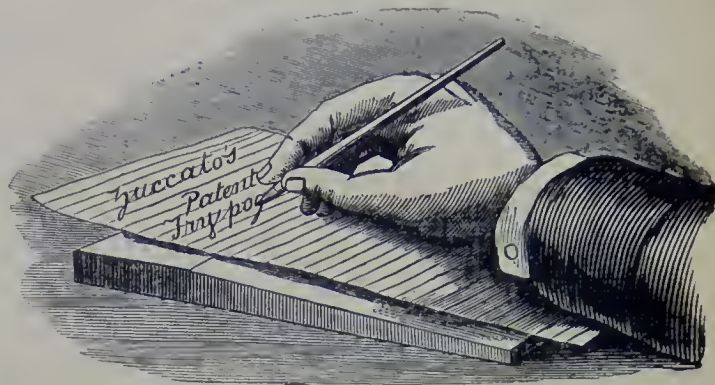 Zuccato's
Patent
Trypog